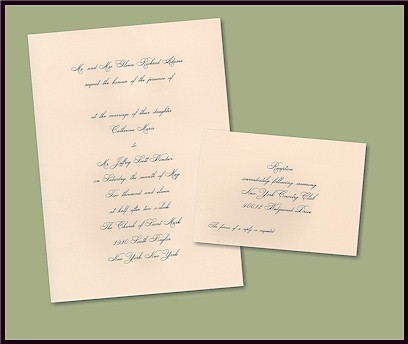 Mr. and Mrs. Steven Richard Adams
request the honour of the presence of
at the marriage of their daughter
Catherine Marie
to
Mr. Jeffrey Scott
on Saturday, the seventh of May
Two thousand and eleven
at half after two o'clock
The Church of Saint Mark
1910 South
New York, New York
Reception
immediately following ceremony
New York Country Club
Drive
The favour of a reply is requested